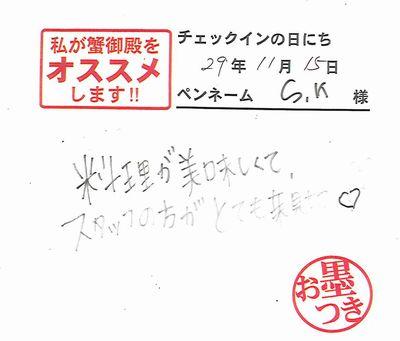 私が蟹御殿を
オススメ
します!!
チェックインの日にち
29年 11月 15日
ペンネーム S.K 様
料理が美味しくて、
スタッフの方がとても ♡
お墨つき